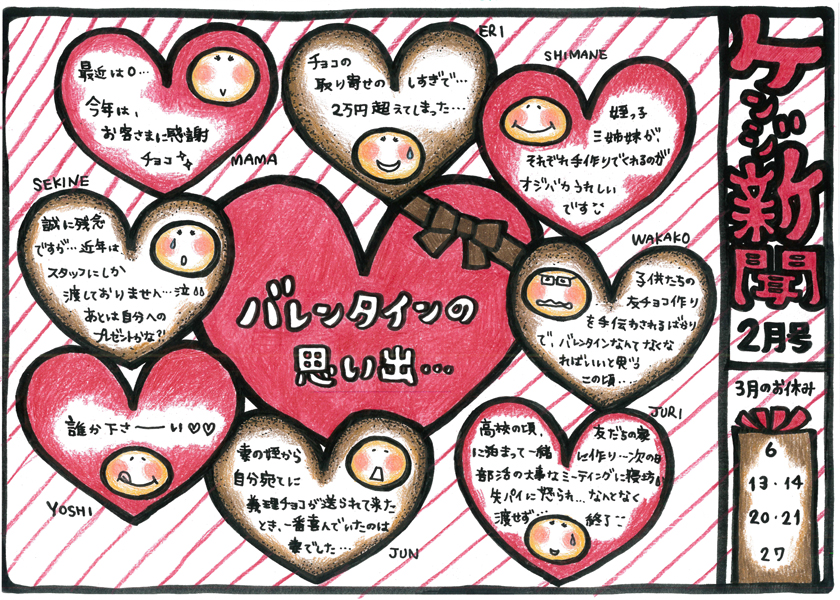 ケンジ新聞
2月号
3月のお休み
6
13・14
20・21
27
バレンタインの
思い出…
MAMA
最近は0…
今年は、
お客さまに感謝
チョコ
ERI
チョコの
取り寄せのしすぎで…
2万円超えてしまった…
SHIMANE
姪っ子
三姉妹が
それぞれ手作りでくれるのが
オジバカうれしい
です
SEKINE
誠に残念
ですが…近年は
スタッフにしか
渡しておりません…泣
あとは自分への
プレゼントかな?!
WAKAKO
子供たちの
友チョコ作り
を手伝わされるばかり
で、バレンタインなんてなくな
ればいいと思う
この頃…
YOSHI
誰か下さーーい♡♡
JUN
妻の姪から
自分宛てに
義理チョコが送られて来た
とき、一番喜んでいたのは
妻でした…
JURI
高校の頃、友だちの家
に泊まって一緒に作り…次の日
部活の大事なミーティングに寝坊
先パイに怒られ…なんとなく
渡せず…終了